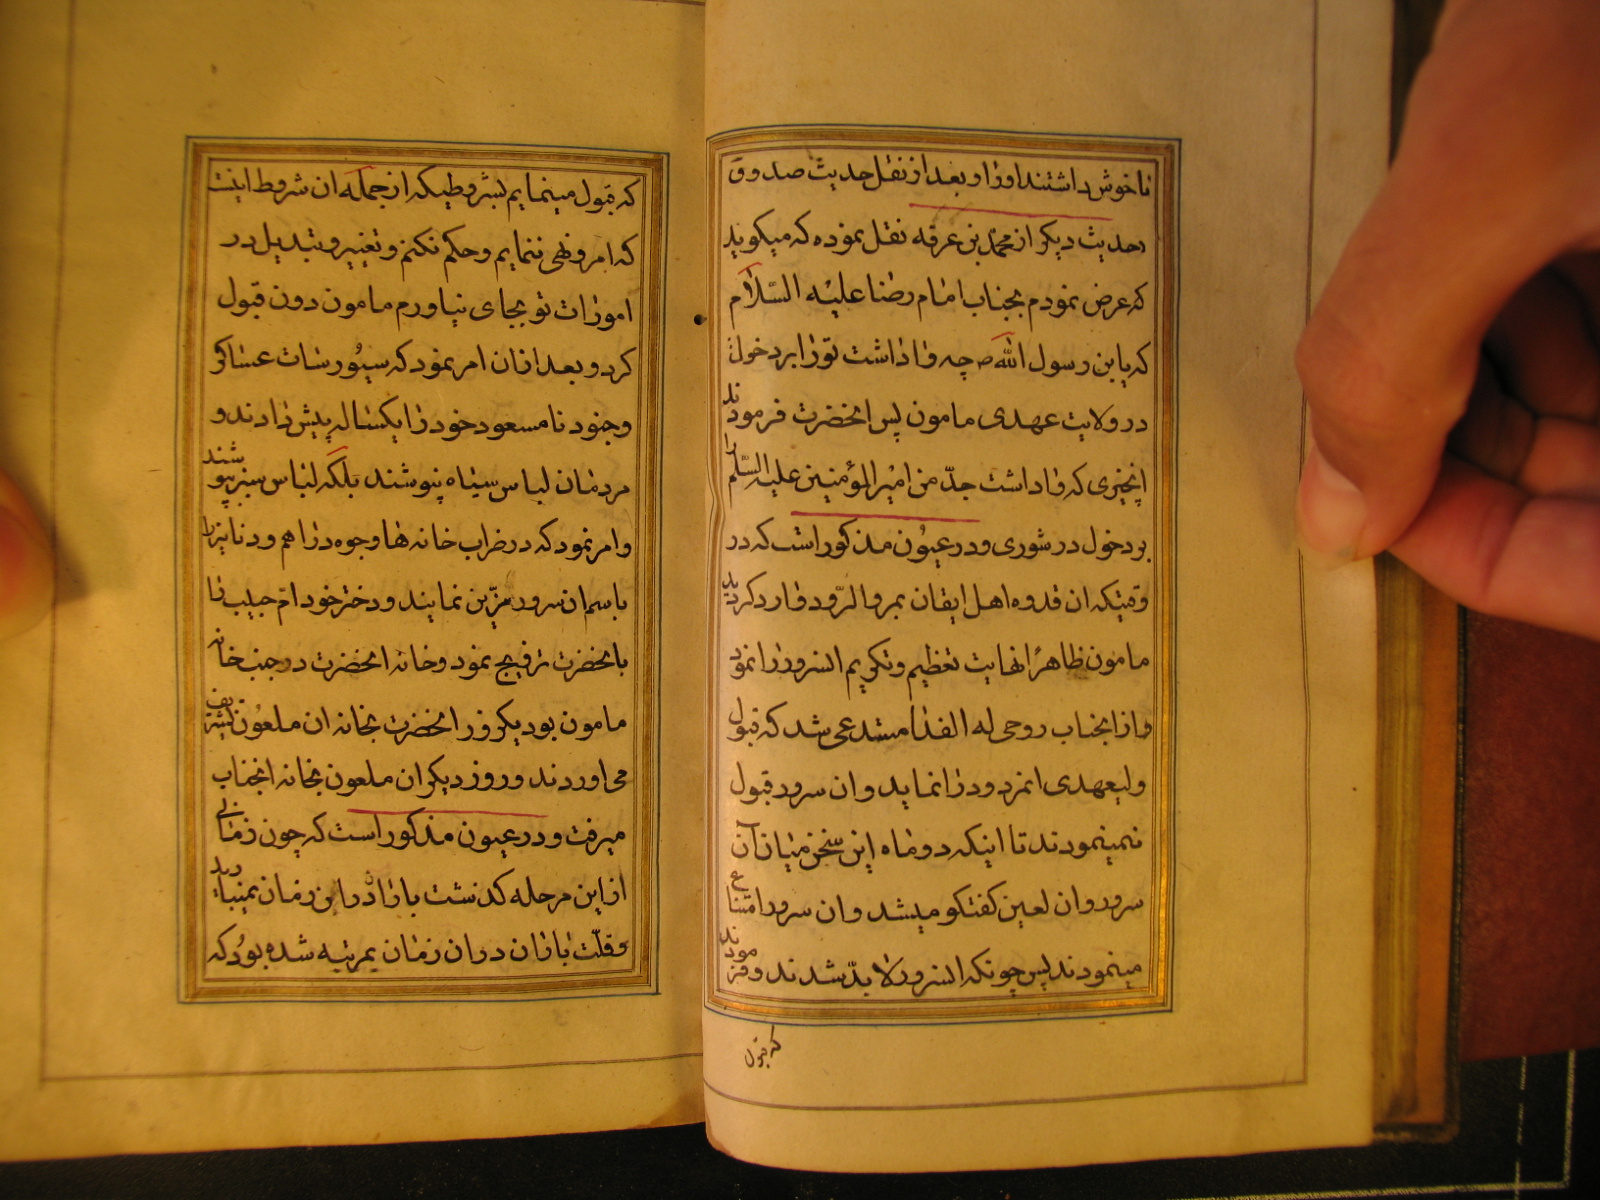 ناخوش داشتند او را و بعد از نقل حدیث صدوق
حدیث دیکر از محمد بن عرفه نقل نموده که میکوید
که عرض نمودم بجناب امام رضا علیه السّلام
که یابن رسول الله ص چه واداشت تو را بر دخول
در ولایت عهدی مامون پس انحضرت فرمودند
انچیزی که واداشت جدّ من امیر المؤمنین علیه السّلم را
بر دخول در شوری و در عیون مذکور است که در
وقتیکه ان قدوه اهل ایقان بمرو الرّود وارد کردید
مامون ظاهرًا نهایت تعظیم و تکریم انسرور را نمود
و از انجناب روحی له الفدا مستدعی شد که قبول
ولیعهدی انمردود را نماید و ان سرور قبول
نمینمودند تا اینکه دو ماه این سخن میان آن
سرور و ان لعین کفتکو میشد و ان سرور امتناع
مینمودند پس چونکه انسرور لابدّ شدند و فرمودند
که قبول
که قبول مینمایم بشروطیکه از جمله ان شروط اینست
که امر و نهی ننمایم و حکم نکنم و تغییر و تبدیل در
امورات تو بجای نیاورم مامون دون قبول
کرد و بعد از ان امر نمود که سیورسات عساکر
و جنود نا مسعود خود را یکساله پیش دادند و
مردمان لباس سیاه نپوشند بلکه لباس سبز پوشند
و امر نمود که در ضراب خانه ها وجوه دراهم و دنانیر را
باسم ان سرور مزّین نمایند و دختر خود امّ حبیب را
بانحضرت تزویج نمود و خانه انحضرت در جنب خانه
مامون بود یکروز انحضرت بخانه ان ملعون تشریف
می اوردند و روز دیکر ان ملعون بخانه انجناب
میرفت و در عیون مذکور است که چون زمانی
از این مرحله کذشت باران در ان زمان نمیبارید
و قلّت باران در ان زمان بمرتبه شده بود که